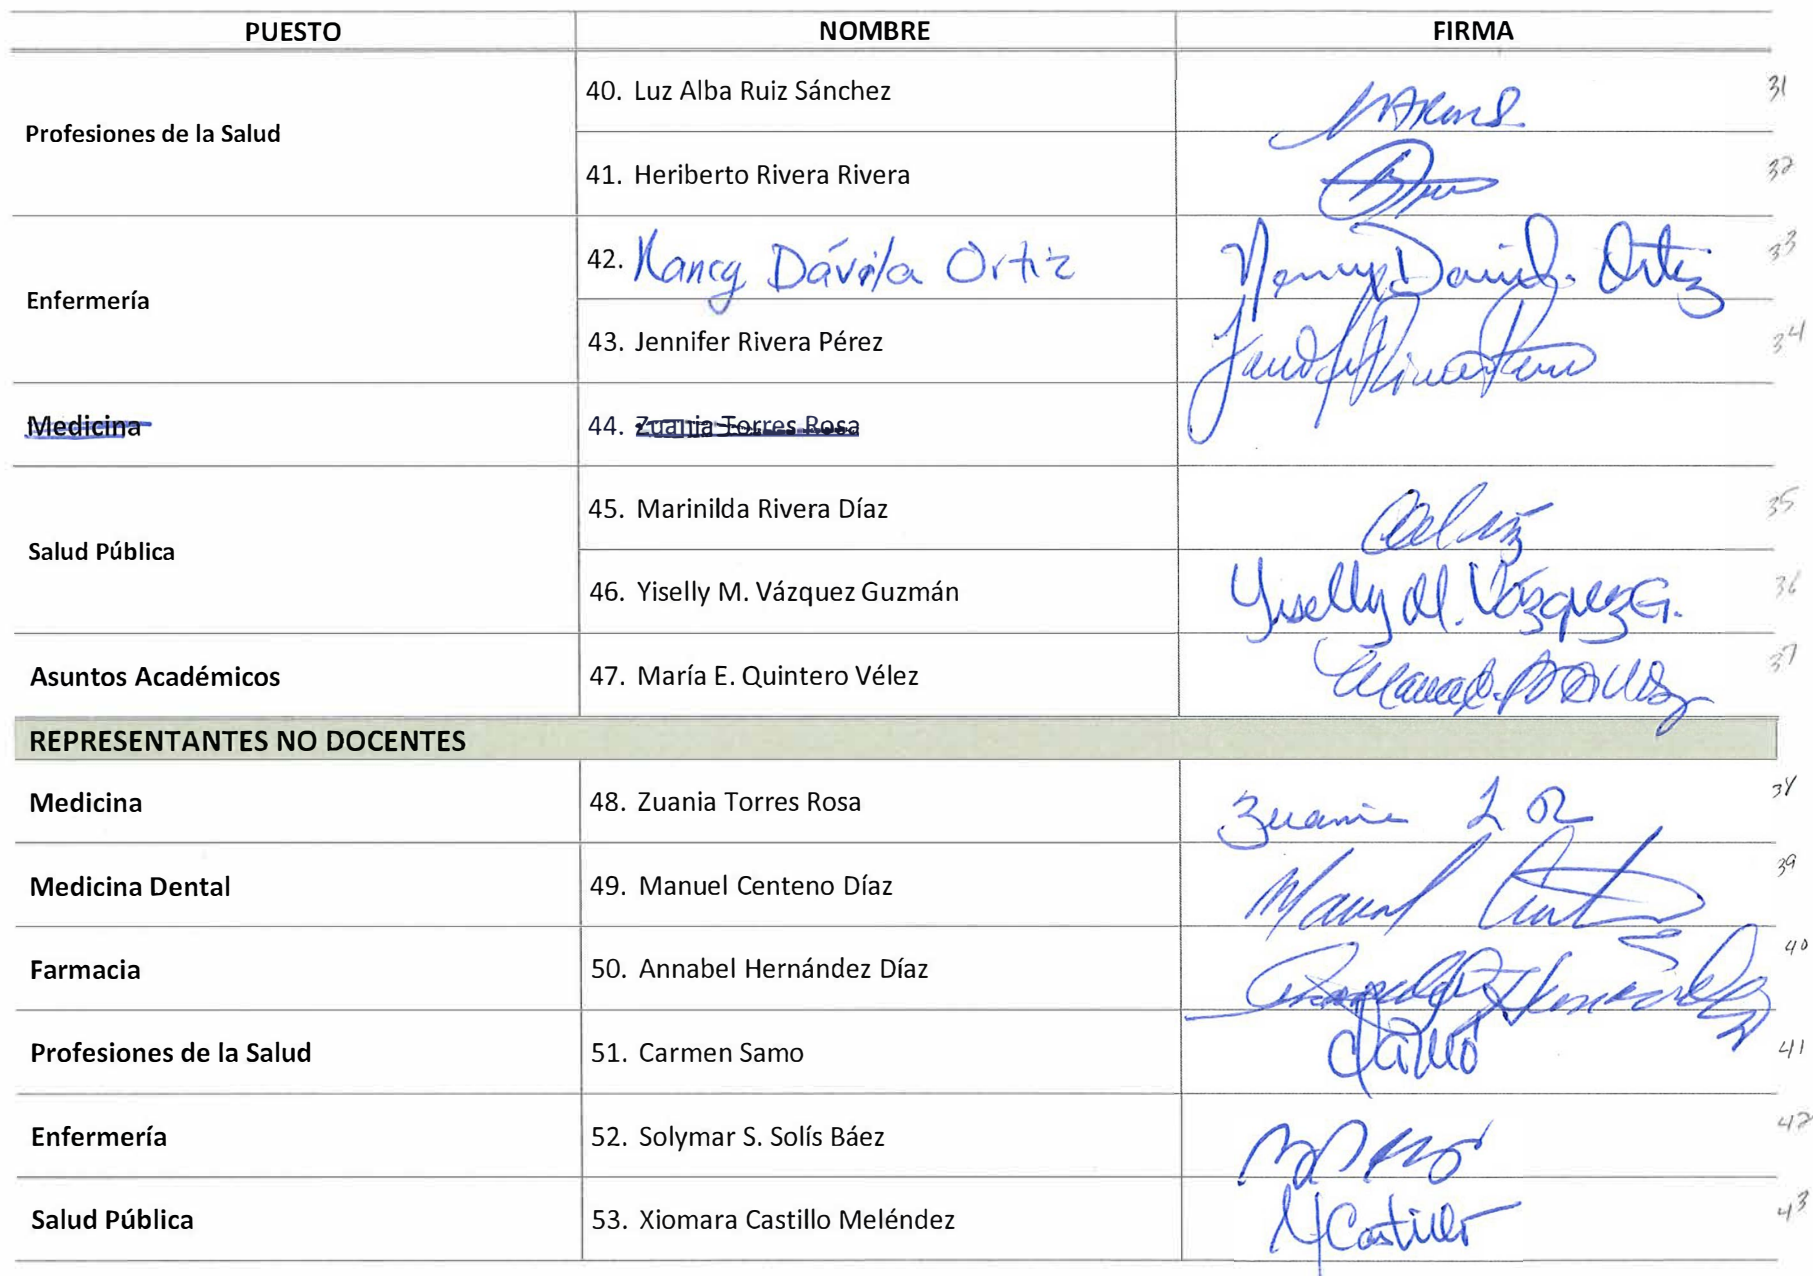 PUESTO NOMBRE FIRMA
Profesiones de la Salud
40. Luz Alba Ruiz Sánchez 31
41. Heriberto Rivera Rivera 32
Enfermería
42. Nancy Dávila Ortiz Nancy Davila Ortiz 33
43. Jennifer Rivera Pérez 34
Medicina 44. Zuania Torres Rosa
Salud Pública
45. Marinilda Rivera Díaz 35
46. Yiselly M. Vázquez Guzmán Yiselly M. Vázquez G. 36
Asuntos Académicos 47. María E. Quintero Vélez 37
REPRESENTANTES NO DOCENTES
Medicina 48. Zuania Torres Rosa Zuania 38
Medicina Dental 49. Manuel Centeno Díaz Manuel 39
Farmacia 50. Annabel Hernández Díaz 40
Profesiones de la Salud 51. Carmen Samo 41
Enfermería 52. Solymar S. Solís Báez 42
Salud Pública 53. Xiomara Castillo Meléndez XCastillo 43